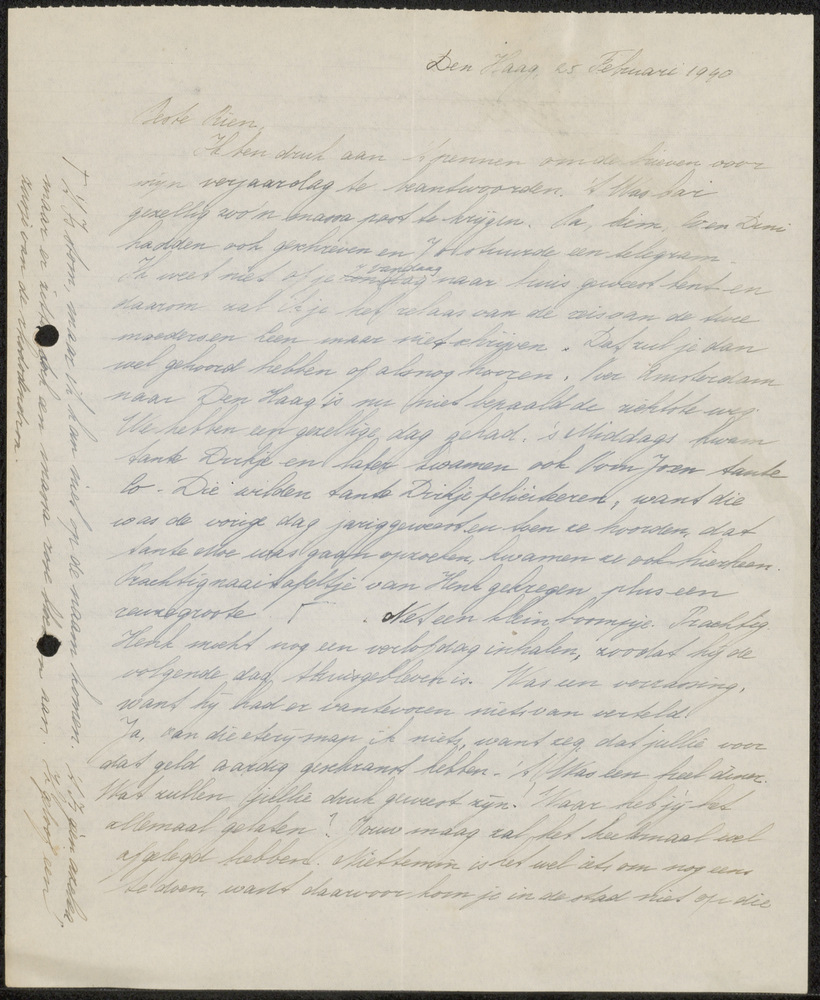 Den Haag, 25 Februari 1940
Beste Rien,
Ik ben druk aan 't pennen om de brieven voor
mijn verjaardag te beantwoorden. 't Was fair
gezellig zoo'n massa post te krijgen. Pa, dim, en Dini
hadden ook geschreven en Jo stuurde een telegram.
Ik weet niet of je vandaag naar huis geweest bent en
daarom zal ik je het relaas van de reis aan de twee
moeders en Leen maar niet schrijven. Dat zul je dan
wel gehoord hebben of alsnog hooren. Over Amsterdam
naar Den Haag is nu niet bepaald de rechtste weg.
We hebben een gezellige dag gehad. 's Middags kwam
tante Dirkje en later kwamen ook Oom Joen tante
Co. Die wilden tante Dirkje feliciteeren, want die
was de vorige dag jarig geweest en toen ze hoorden, dat
tante was gaan opzoeken, kwamen ze ook hierheen.
Prachtig naaitafeltje van Henk gekregen plus een
reuzegroote . Net een klein boompje. Prachtig.
Henk mocht nog een verlofdag inhalen, zoodat hij de
volgende dag thuisgebleven is. Was een verrassing,
want hij had er vantevoren niets van verteld.
Ja, van die eterij snap ik niets, want zeg, dat jullie voor
dat geld aardig geschranst hebben. 't Was een heel diner.
Wat zullen jullie druk geweest zijn. Waar heb jij het
allemaal gelaten? Jouw maag zal het heelemaal wel
afgelegd hebben. Niettemin is het wel iets om nog eens
te doen, want daarvoor kom je in de stad niet op die
't Is stom, maar ik kan niet op de naam komen. 't Is geen azalea,
maar er zitten ook en massa roze aan. 'k geloof een
zusje van de rhododendron.